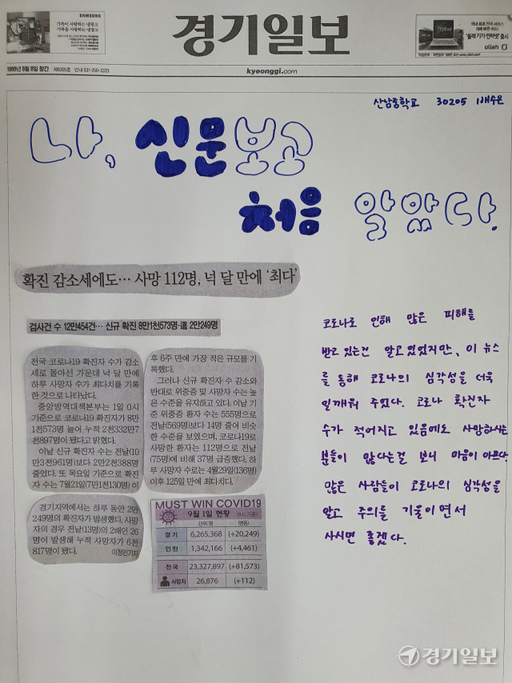 경기일보
kyeonggi.com
1988년 8월 8일 창간
olleh
산남중학교 30205
나, 신문보고
처음 알았다.
확진 감소세에도… 사망 112명, 넉 달 만에 '최다'
검사건 수 12만454건… 신규 확진 8만1천573명·道 2만249명
전국 코로나19 확진자 수가 감소
세로 돌아선 가운데 넉 달 만에
하루 사망자 수가 최다치를 기록
한 것으로 나타났다.
중앙방역대책본부는 1일 0시
기준으로 코로나19 확진자가 8만
1천573명 늘어 누적 2천332만7
천897명이 됐다고 밝혔다.
이날 신규 확진자 수는 전날(10
만3천961명)보다 2만2천388명
줄었다. 또 목요일 기준으로 확진자
수는 7월21일(7만1천130명) 이
후 6주 만에 가장 적은 규모를 기
록했다.
그러나 신규 확진자 수 감소와
반대로 위중증 및 사망자 수는 높
은 수준을 유지하고 있다. 이날 기
준 위중증 환자 수는 555명으로
전날(569명)보다 14명 줄어 비슷
한 수준을 보였으며, 코로나19로
사망한 환자는 112명으로 전날
(75명)에 비해 37명 급증했다. 하
루 사망자 수로는 4월29일(136명)
이후 125일 만에 최다치다.
경기지역에서는 하루 동안 2만
249명의 확진자가 발생했다. 사망
자의 경우 전날(13명)의 2배인 26
명이 발생해 누적 사망자가 6천
817명이 됐다.
MUST WIN COVID19
9월 1일 현황
경기 6,265,368 (+20,249)
인천 1,342,166 (+4,461)
전국 23,327,897 (+81,573)
사망자 26,876 (+112)
코로나로 인해 많은 피해를
받고 있는건 알고 있었지만, 이 뉴스
를 통해 코로나의 심각성을 더욱
일깨워 주었다. 코로나 확진자
수가 적어지고 있음에도 사망하시는
분들이 많다는걸 보니 마음이 아프다
많은 사람들이 코로나의 심각성을
알고 주의를 기울이면서
사시면 좋겠다.
경기일보